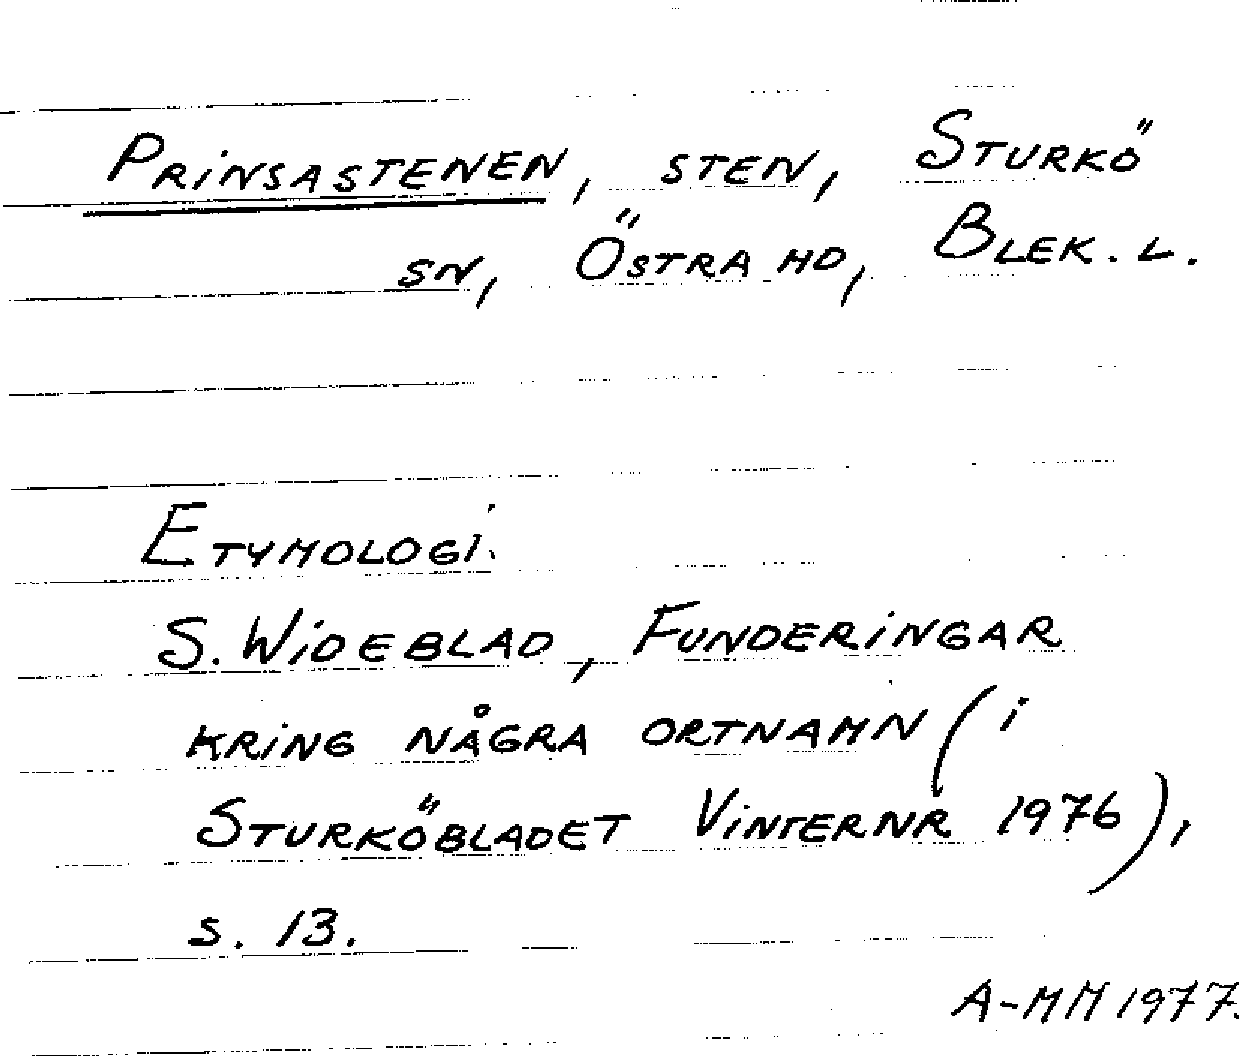 Prinsastenen, sten, Sturkö
sn, Östra hd, Blek. l.
Etymologi:
S. Wideblad, Funderingar
kring några ortnamn (i
Sturköbladet Vinternr 1976),
s. 13.
A-MM 1977.